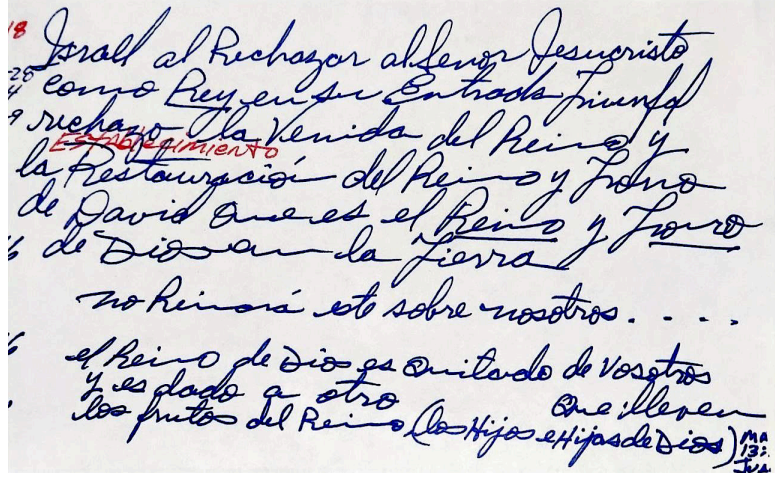 18
Israel al Rechazar al Señor Jesucristo
28 como Rey en su Entrada Triunfal
9 rechazo la Venida del Reino y
Establecimiento
la Restauración del Reino y Trono
de David Que es el Reino y Trono
6 de Dios en la Tierra
no Reinará este sobre nosotros. . . .
6 el Reino de Dios es Quitado de Vosotros
y es dado a otro Que lleven
los frutos del Reino (los Hijos e Hijas de Dios) MA
13:
JUA